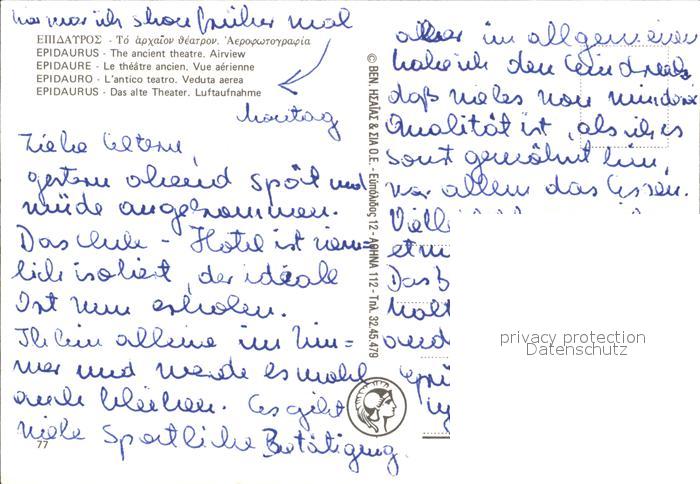 hier war ich schon früher mal
ΕΠΙΔΑΥΡΟΣ - Τό ἀρχαῖον θέατρον. Ἀεροφωτογραφία
EPIDAURUS - The ancient theatre. Airview
EPIDAURE - Le théâtre ancien. Vue aérienne
EPIDAURO - L'antico teatro. Veduta aerea
EPIDAURUS - Das alte Theater. Luftaufnahme
Montag
Liebe Eltern,
gestern abend spät und
müde angekommen.
Das Club - Hotel ist ziem=
lich isoliert, der ideale
Ort zum erholen.
Ich bin alleine im Zim=
mer und werde es wohl
auch bleiben. Es gibt
viele Sportliche Betätigung.
77
© BEN. ΗΣΑΪΑΣ & ΣΙΑ Ο.Ε. - Εὐπόλιδος 12 - ΑΘΗΝΑ 112 - Τηλ. 32.45.479
aber im allgemeinen
habe ich den Eindruck,
daß vieles von minderer
Qualität ist, als ich es
sonst gewöhnt bin,
vor allem das Essen.
Viell
etw
Das
halt
und
privacy protection
Datenschutz